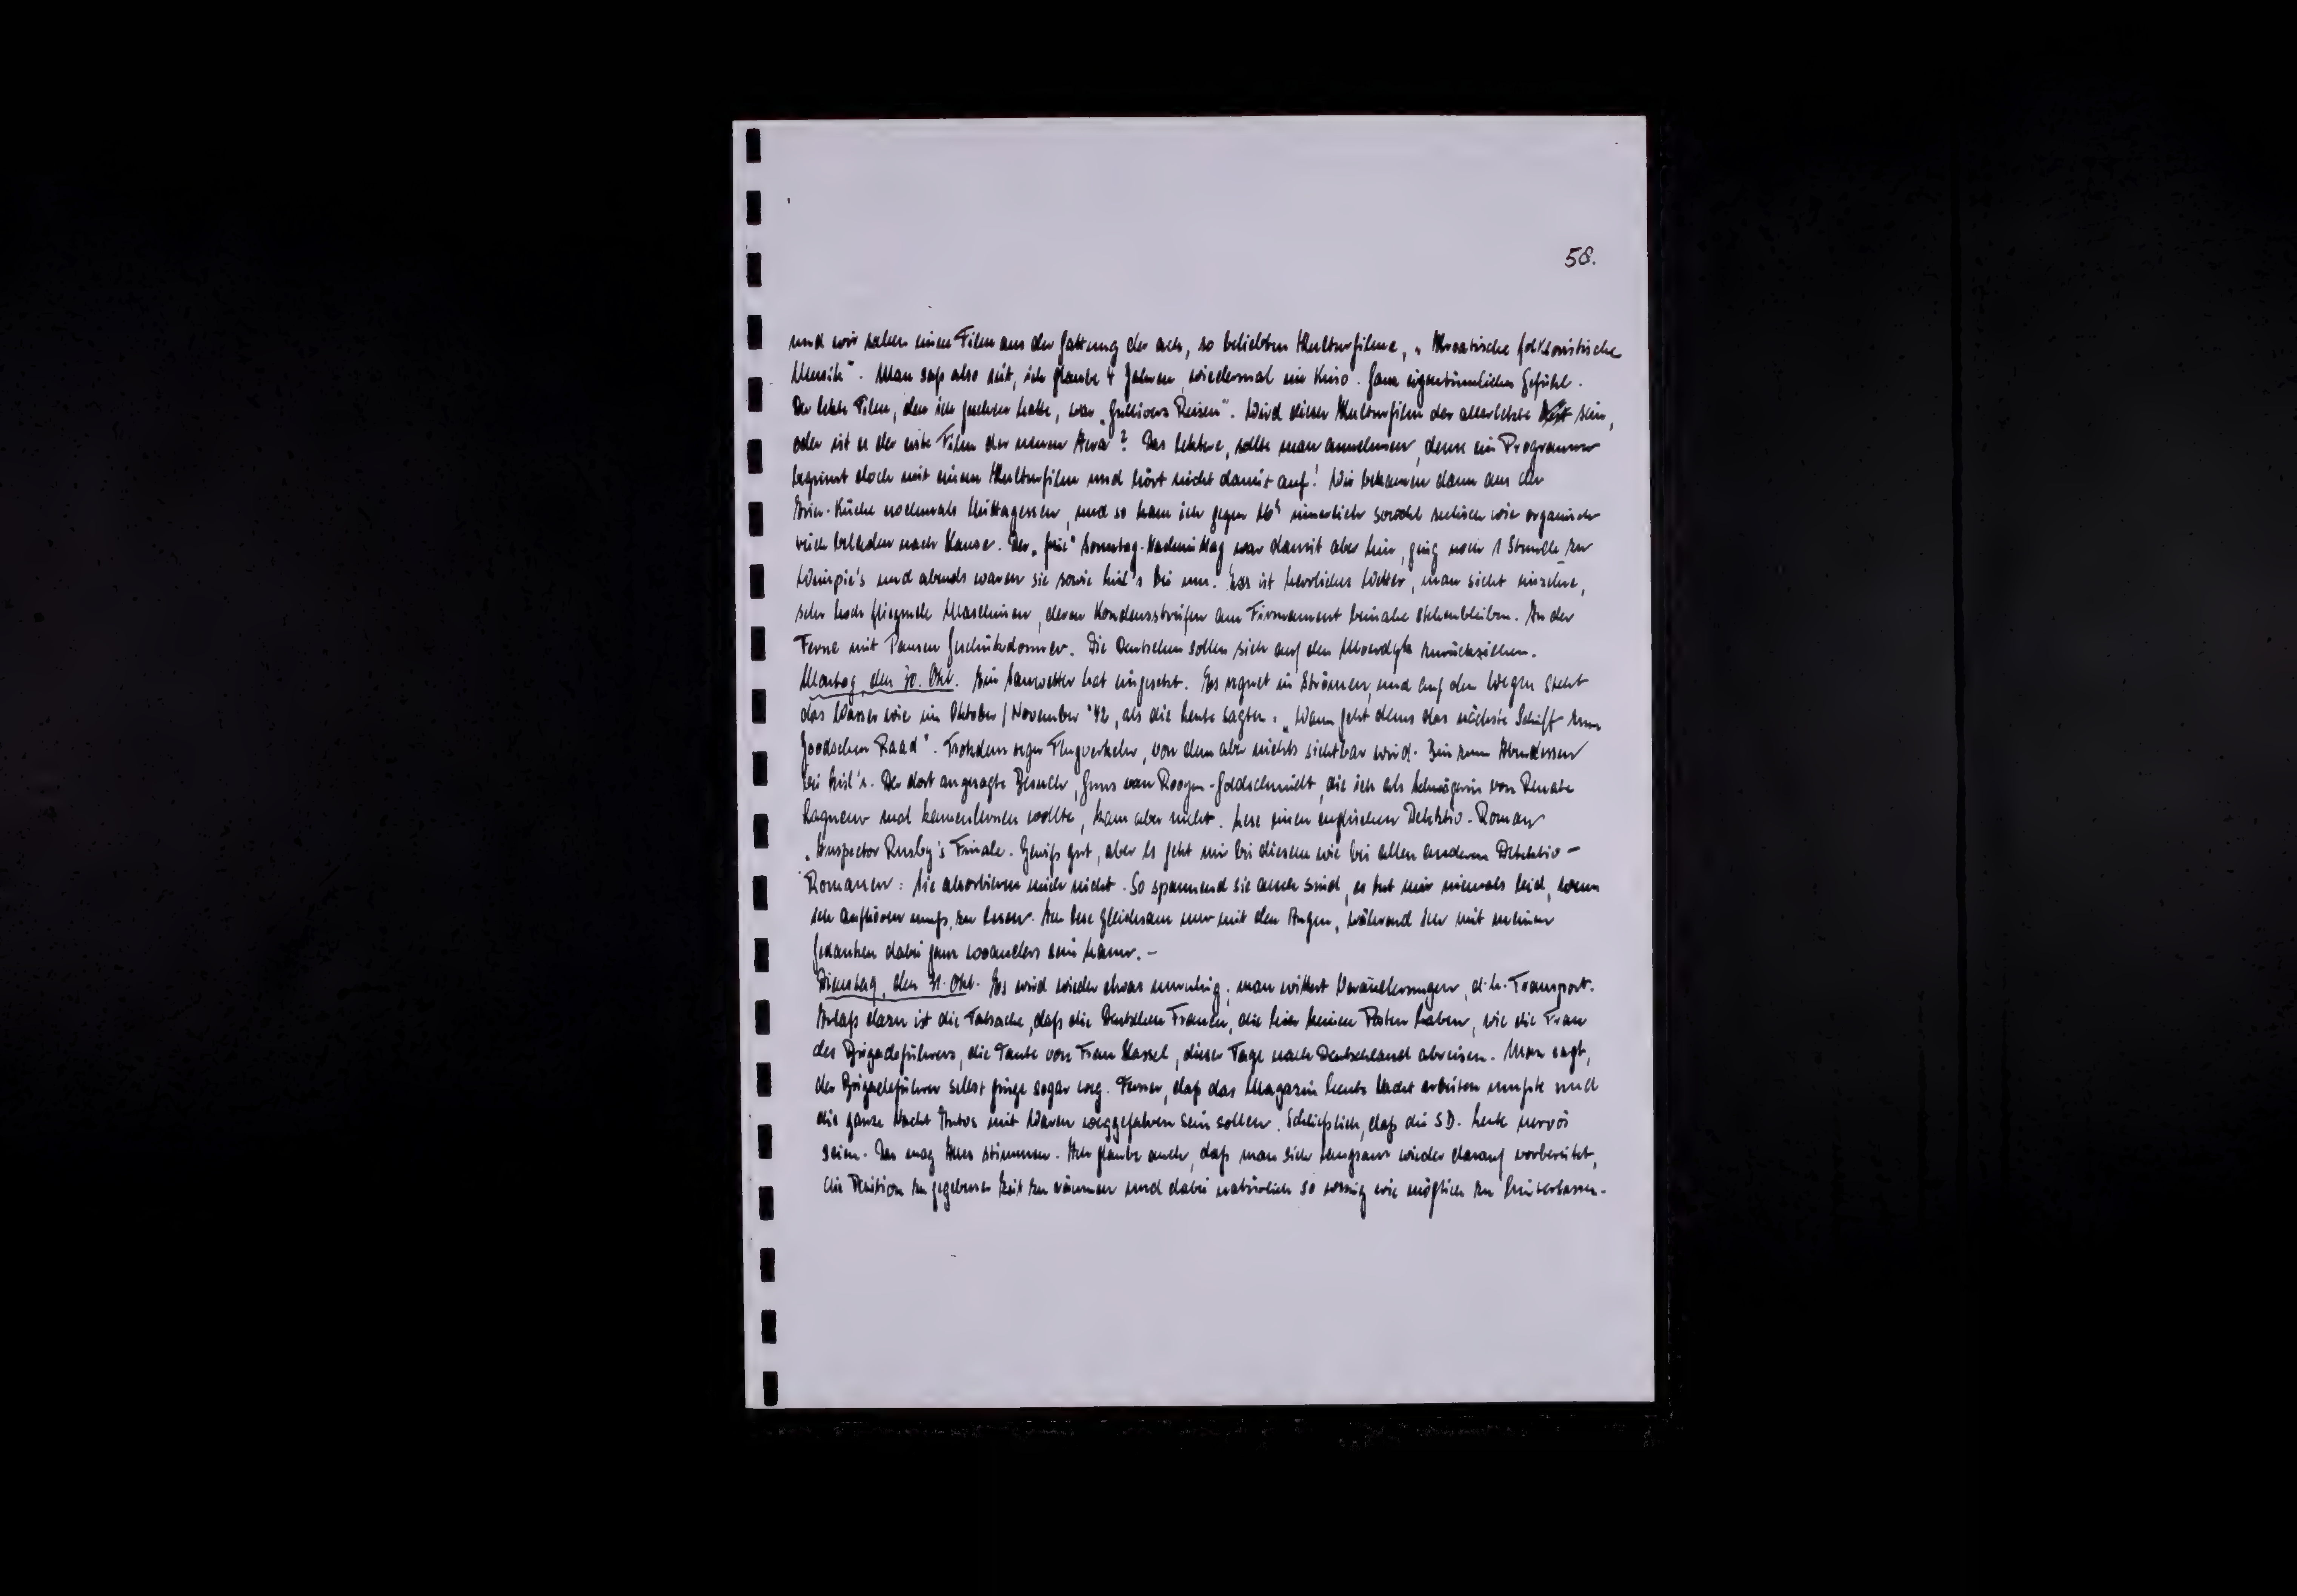 58.
und wir sahen einen Film aus der Gattung der ach, so beliebten Kulturfilme, „Kroatische folkloristische
Musik". Man saß also seit, ich glaube 4 Jahren, wiedermal im Kino. Ganz eigentümliches Gefühl.
Der letzte Film, den ich gesehen habe, war „Gullivers Reisen". Wird dieser Kulturfilm der allerletzte sein,
oder ist es der erste Film der neuen Aera? Das letztere, sollte man annehmen, denn ein Programm
beginnt doch mit einem Kulturfilm und hört nicht damit auf! Wir bekamen dann aus der
Küche nochmals Mittagessen, und so kam ich gegen 16h innerlich sowohl seelisch wie organisch
reich beladen nach Hause. Der „freie" Sonntag-Nachmittag war damit aber hin, ging noch 1 Stunde zu
Wimpie's und abends waren sie sowie bei uns. Es ist herrliches Wetter, man sieht einzelne,
sehr hoch fliegende Maschinen, deren Kondensstreifen am Firmament beinahe stehenbleiben. In der
Ferne mit Pausen Geschützdonner. Die Deutschen sollen sich auf den Moerdyk zurückziehen.
Montag, den 30. Okt. Ein Sauwetter hat eingesetzt. Es regnet in Strömen, und auf den Wegen steht
das Wasser wie im Oktober/November '42, als die Leute sagten: „Wann geht denn das nächste Schiff zum
Joodschen Raad". Trotzdem reger Flugverkehr, von dem aber nichts sichtbar wird. Bin zum Abendessen
bei . Der dort angesagte Besuch, Guus van Rooyen-Goldschmidt, die ich als Schwägerin von Renate
kennenlernen wollte, kam aber nicht. Lese einen englischen Detektiv-Roman
„Inspector Rusby's Finale. Gewiß gut, aber es geht mir bei diesem wie bei allen anderen Detektiv-
Romanen: Sie absorbieren mich nicht. So spannend sie auch sind, es tut mir niemals leid, wenn
ich aufhören muß, zu lesen. Ich lese gleichsam nur mit den Augen, während ich mit meinen
Gedanken dabei ganz woanders sein kann.-
Dienstag, den 31. Okt. Es wird wieder etwas unruhig; man wittert Veränderungen, d.h. Transport.
Anlaß dazu ist die Tatsache, daß die Deutschen Frauen, die hier keinen Posten haben, wie die Frau
des Brigadeführers, die Tante von Frau Hassel, dieser Tage nach Deutschland abreisen. Man sagt,
der Brigadeführer selbst ginge sogar weg. Ferner, daß das Magazin heute Nacht arbeiten mußte und
die ganze Nacht Autos mit Waren weggefahren sein sollen. Schließlich, daß die SD. Leute nervös
seien. Das mag Alles stimmen. Ich glaube auch, daß man sich langsam wieder darauf vorbereitet,
die Position zu gegebener Zeit zu räumen und dabei natürlich so wenig wie möglich zu hinterlassen.